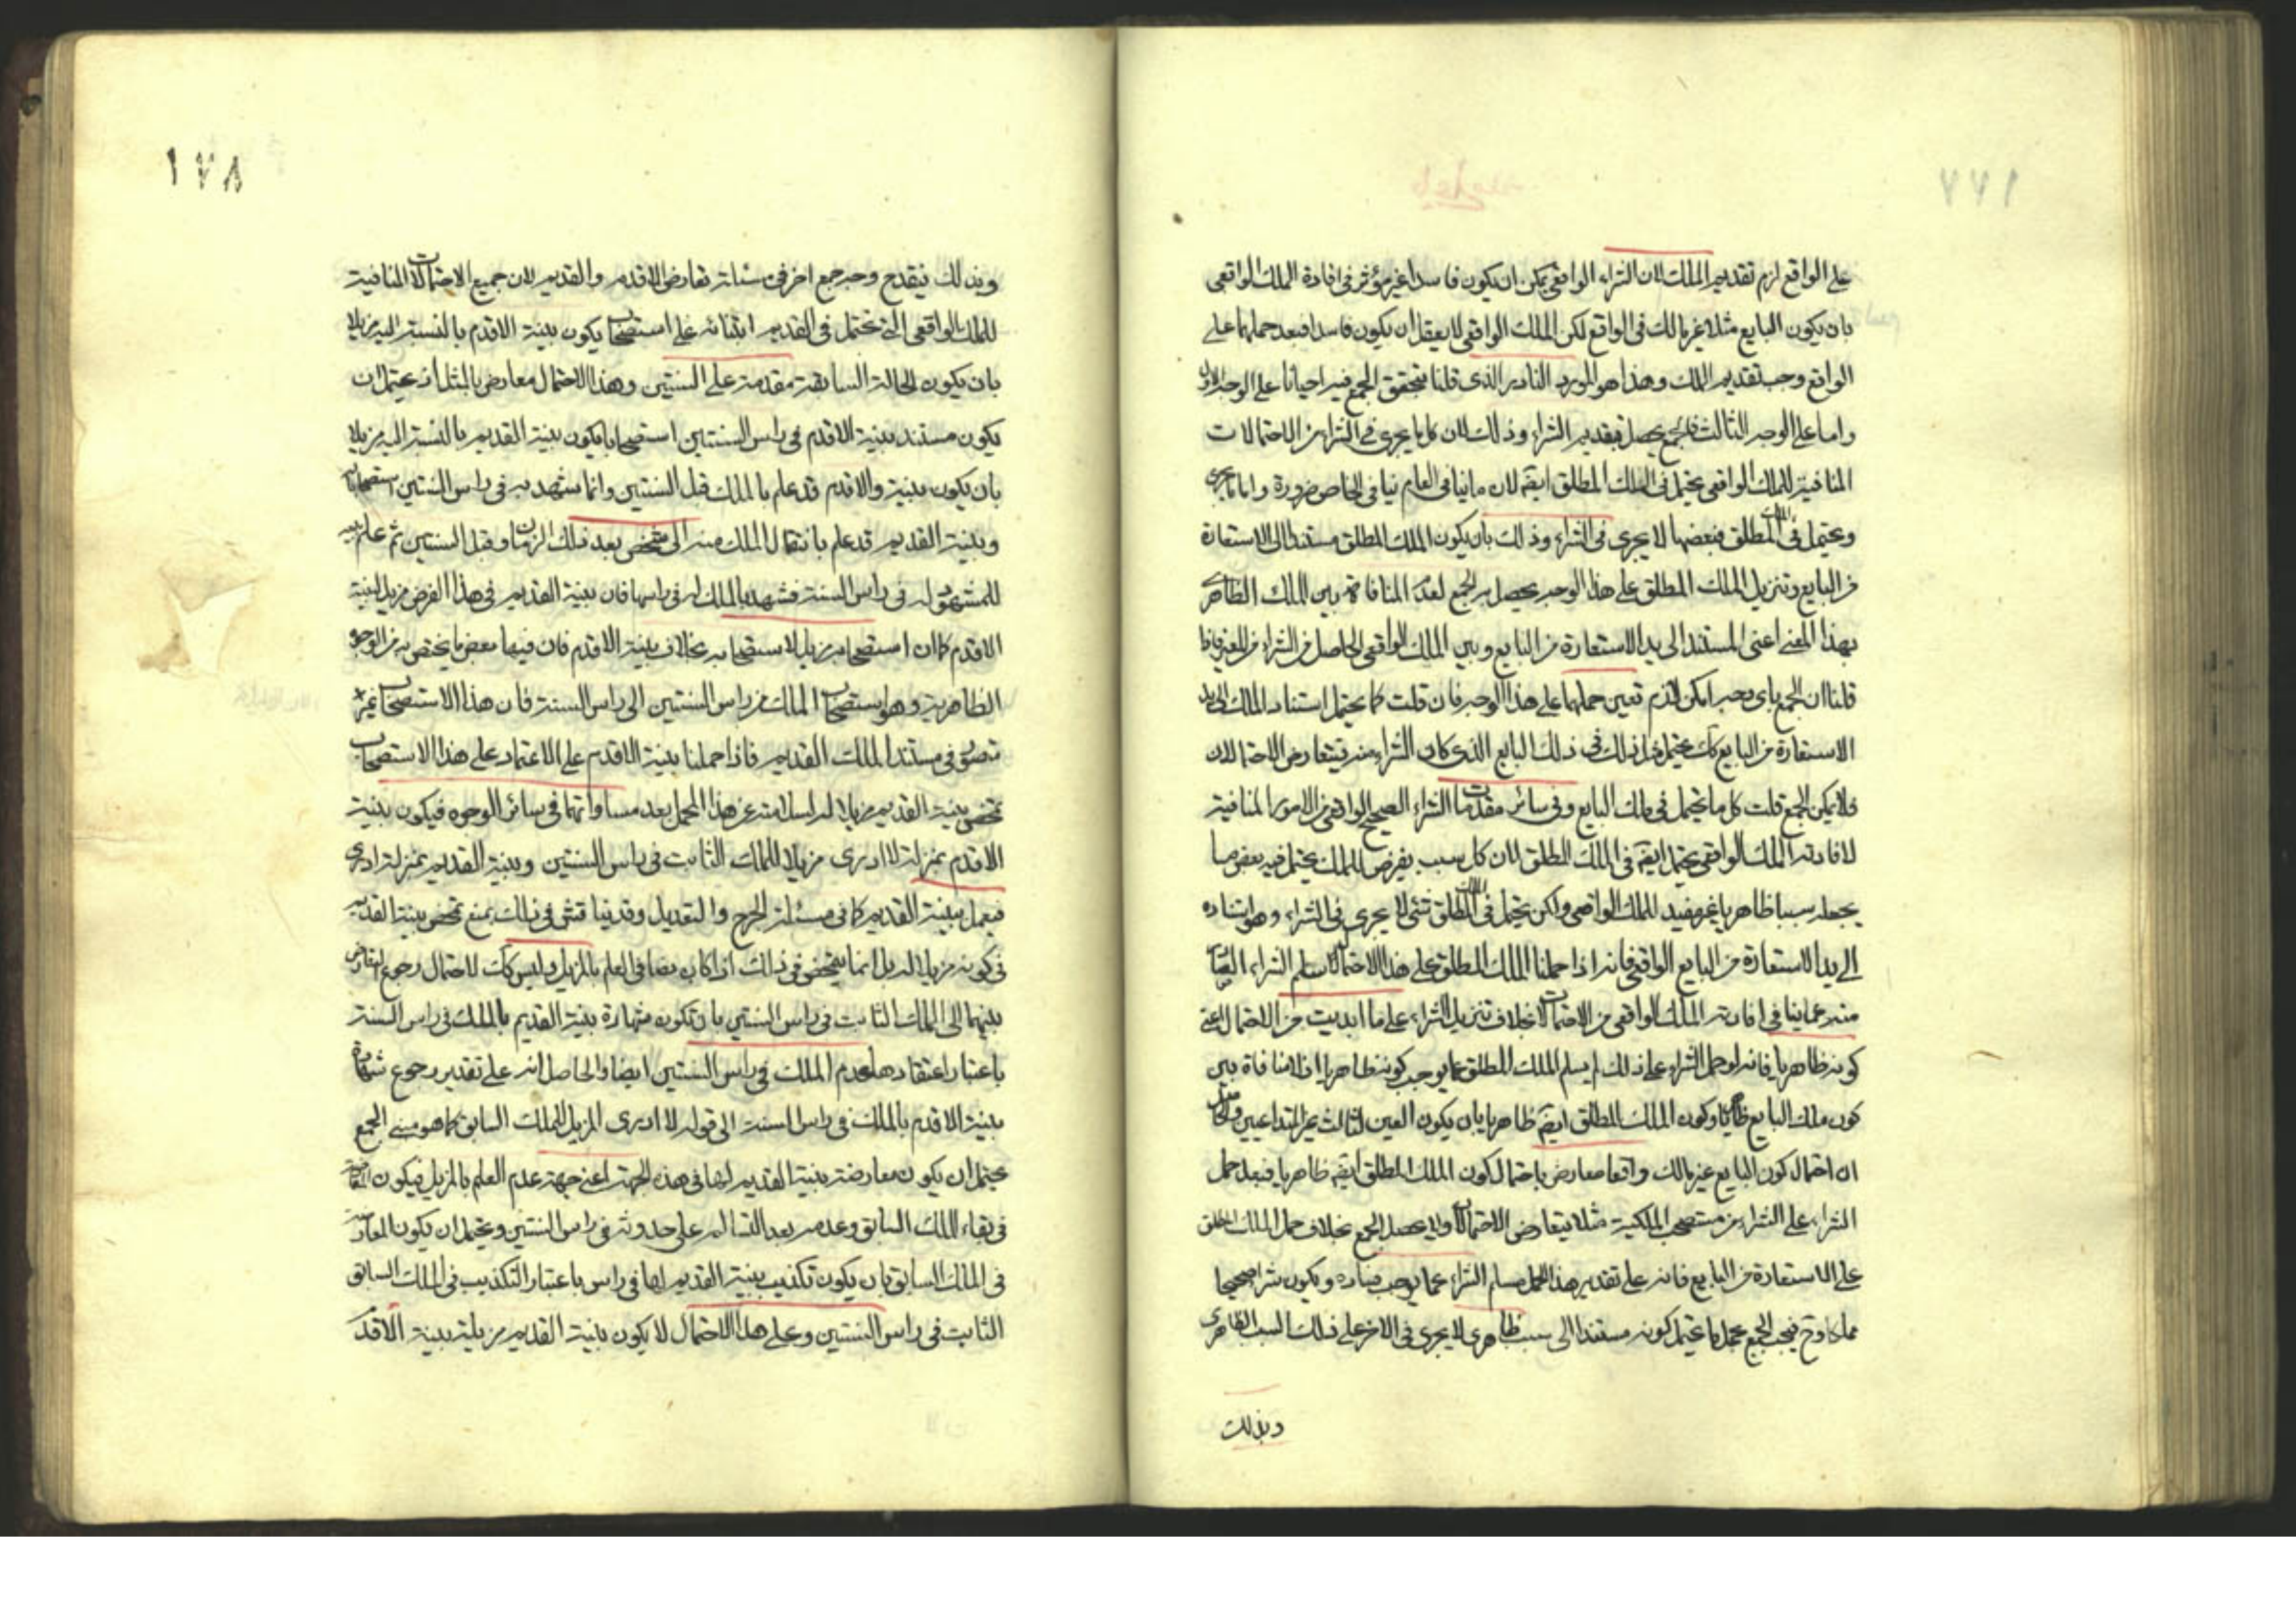 على الواقع لزم تقديم الملك لان الشراء الواقعى يمكن ان يكون فاسدا غير مؤثر فى افادة الملك الواقعى
بان يكون البايع مثلا غير مالك فى الواقع لكن الملك الواقعى لا يعقل ان يكون فاسدا فبعد حملهما على
الواقع وجب تقديم الملك وهذا هو المورد النادر الذى قلنا يتحقق الجمع فيه احيانا على الوجه الاول
واما على الوجه الثالث فالجمع يحصل بتقديم الشراء وذلك لان كل ما يجرى فى الشراء من الاحتمالات
المنافية للملك الواقعى يحتمل فى الملك المطلق ايضه لان ما ينافى العام ينافى الخاص ضرورة واما ما يجرى
ويحتمل فى الملك المطلق فبعضها لا يجرى فى الشراء وذلك بان يكون الملك المطلق مستندا الى الاستعارة
من البايع وتنزيل الملك المطلق على هذا الوجه يحصل به الجمع لعدم المنافاة بين الملك الظاهرى
بهذا المعنى اعنى المستند الى يد الاستعارة من البايع وبين الملك الواقعى الحاصل من الشراء من المعير فاذا
قلنا ان الجمع باى وجه امكن لازم تعين حملهما على هذا الوجه فان قلت كما يحتمل استناد الملك الى يد
الاستعارة من البايع كك يحتمل مثل ذلك فى ذلك البايع الذى كان الشراء منه فيتعارض الاحتمالان
فلا يمكن الجمع قلت كل ما يحتمل فى ملك البايع وفى سائر مقدمات الشراء الصحيح الواقعى من الامور المنافية
لافادته الملك الواقعى يحتمل ايضه فى الملك المطلق لان كل سبب يفرض للملك يحتمل فيه بعض ما
يجعله سببا ظاهريا غير مفيد للملك الواقعى ولكن يحتمل فى الملك المطلق شئ لا يجرى فى الشراء وهو استناده
الى يد الاستعارة من البايع الواقعى فانه اذا حملنا الملك المطلق على هذا الاحتمال سلم الشراء
منه عما ينافى افادته الملك الواقعى من الاحتمالات بخلاف تنزيل الشراء على ما ابديت من الاحتمال اعنى
كونه ظاهريا فانه لو حمل الشراء على ذلك لم يسلم الملك المطلق عما يوجب كونه ظاهريا اذ لا منافاة بين
كون ملك البايع ظاهريا وكون الملك المطلق ايضه ظاهريا بان يكون العين لثالث غير المتداعيين والحاصل
ان احتمال كون البايع غير مالك واقعا معارض باحتمال كون الملك المطلق ايضه ظاهريا فبعد حمل
الشراء على الشراء من مستصحب الملكية مثلا يتعارض الاحتمالان ولا يحصل الجمع بخلاف حمل الملك المطلق
على الاستعارة من البايع فانه على تقدير هذا الحمل يسلم الشراء عما يوجب فساده ويكون شراء صحيحا
مملكا وح فيجب الجمع بحمل ما يحتمل كونه مستندا الى سبب ظاهرى لا يجرى فى الاخر على ذلك السبب الظاهرى
وبذلك
١٧٨
وبذلك ينقدح وجه جمع اخر فى مسئلة تعارض الاقدم والقديم لان جميع الاحتمالات المنافية
للملك الواقعى التى تحتمل فى القديم ابتنائه على استصحاب يكون بينة الاقدم بالنسبة اليه مزيلا
بان يكون الحالة السابقة مقدمة على السنتين وهذا الاحتمال معارض بالمثل اذ يحتمل ان
يكون مستند بينة الاقدم فى راس السنتين استصحابا يكون بينة القديم بالنسبة اليه مزيلا
بان يكون بينة والاقدم قد علم بالملك قبل السنتين وانما يشهد به فى راس السنتين استصحابا
وبينة القديم قد علم بانتقال الملك منه الى شخص بعد ذلك الزمان وقبل السنتين ثم علم به
للمشهود له فى راس السنة فشهد بالملك له فى راسها فان بينة القديم فى هذا الفرض مزيل لبينة
الاقدم كما ان استصحابه مزيل لاستصحابه بخلاف بينة الاقدم فان فيها بعض ما يختص به من الوجوه
الظاهرية وهو استصحاب الملك من راس السنتين الى راس السنة فان هذا الاستصحاب غير
متصور فى مستند الملك القديم فاذا حملنا بينة الاقدم على الاعتماد على هذا الاستصحاب
تمحض بينة القديم مزيلا له لسلامته عن هذا المحمل بعد مساواتهما فى سائر الوجوه فيكون بينة
الاقدم بمنزلة لا ادرى مزيلا للملك الثابت فى راس السنتين وبينة القديم بمنزلة ادرى
فيعمل ببينة القديم كما فى مسئلة الجرح والتعديل وقد يناقش فى ذلك بمنع تمحض بينة القديم
فى كونه مزيلا له بل انما يتمحض فى ذلك اذا كان نصا فى العلم بالمزيل وليس كك لاحتمال رجوع التعارض
بينهما الى الملك الثابت فى راس السنتين بان تكون شهادة بينة القديم بالملك فى راس السنة
باعتبار اعتقادها عدم الملك فى راس السنتين ايضا والحاصل انه على تقدير رجوع شهادة
بينة الاقدم بالملك فى راس السنة الى قوله لا ادرى المزيل للملك السابق كما هو مبنى الجمع
يحتمل ان يكون معارضة بينة القديم لها فى هذه الجهة اعنى جهة عدم العلم بالمزيل فيكون
فى بقاء الملك السابق وعدمه بعد التسالم على حدوثه فى راس السنتين ويحتمل ان يكون المعارضة
فى الملك السابق بان يكون تكذيب بينة القديم لها فى راس باعتبار التكذيب فى الملك السابق
الثابت فى راس السنتين وعلى هذا الاحتمال لا يكون بينة القديم مزيلة لبينة الاقدم